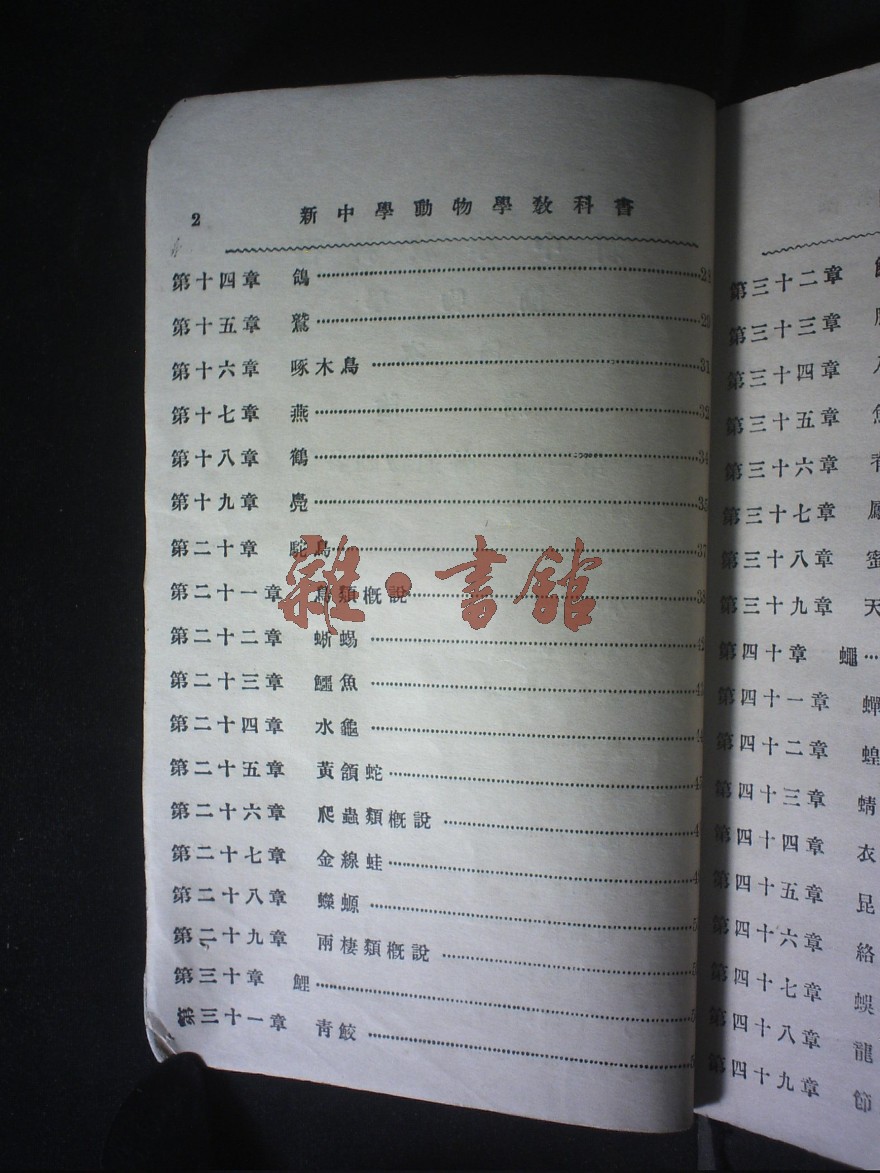 2 新中學動物學教科書
第十四章 鴿
第十五章 鷲……29
第十六章 啄木鳥……31
第十七章 燕……32
第十八章 鶴……34
第十九章 鳧……35
第二十章 駝鳥……37
第二十一章 鳥類概說
第二十二章 蜥蜴
第二十三章 鱷魚
第二十四章 水龜
第二十五章 黃頷蛇
第二十六章 爬蟲類概說
第二十七章 金線蛙
第二十八章 蠑螈
第二十九章 兩棲類概說
第三十章 鯉
第三十一章 青鮫
雜·書館
第三十二章
第三十三章
第三十四章
第三十五章
第三十六章
第三十七章
第三十八章 蜜
第三十九章 天
第四十章 蠅…
第四十一章 蟬
第四十二章 蝗
第四十三章 蜻
第四十四章 衣
第四十五章 昆
第四十六章 絡
第四十七章 蜈
第四十八章 龍
第四十九章 節